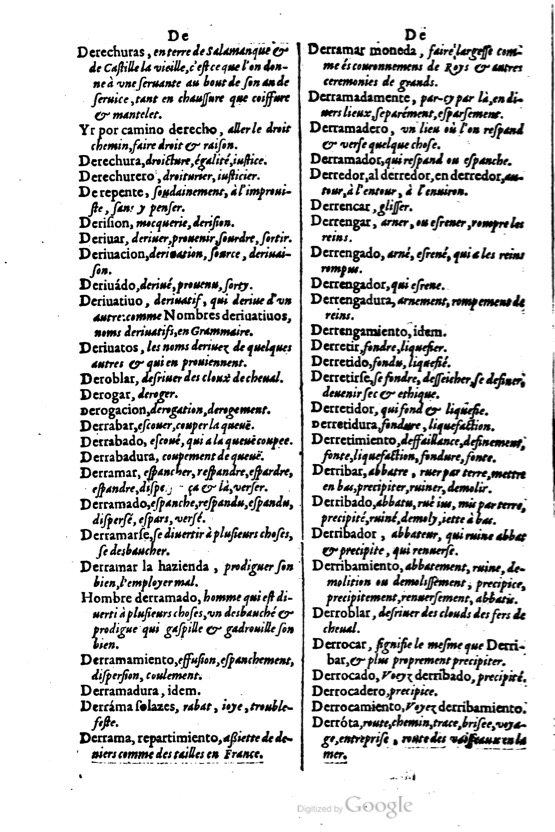 De
Derechuras, en terre de Salamanque &
de Castille la vieille, c'est ce que l'on don-
ne à vne seruante au bout de son an de
seruice, tant en chaussure que coiffure
& mantelet.
Yr por camino derecho, aller le droit
chemin, faire droit & raison.
Derechura, droicture, égalité, iustice.
Derechurero, droiturier, iusticier.
De repente, soudainement, à l'improui-
ste, sans y penser.
Derision, mocquerie, derision.
Deriuar, deriuer, prouenir, sourdre, sortir.
Deriuacion, deriuation, source, deriuai-
son.
Deriuádo, deriué, prouenu, sorty.
Deriuatiuo, deriuatif, qui deriue d'vn
autre: comme Nombres deriuatiuos,
noms deriuatifs, en Grammaire.
Deriuatos, les noms deriuez de quelques
autres & qui en prouiennent.
Deroblar, desriuer des cloux de cheual.
Derogar, deroger.
Derogacion, derogation, derogement.
Derrabar, escouer, couper la queuë.
Derrabado, escoué, qui a la queuë coupee.
Derrabadura, coupement de queuë.
Derramar, espancher, respandre, espardre,
espandre, ça & là, verser.
Derramado, espanche, respandu, espandu,
dispersé, espars, versé.
Derramarse, se diuertir à plusieurs choses,
se desbaucher.
Derramar la hazienda, prodiguer son
bien, l'employer mal.
Hombre derramado, homme qui est di-
uerti à plusieurs choses, vn desbauché &
prodigue qui gaspille & gadrouille son
bien.
Derramamiento, effusion, espanchement,
dispersion, coulement.
Derramadura, idem.
Derráma solazes, rabat, ioye, trouble-
feste.
Derrama, repartimiento, assiette de de-
niers comme des tailles en France.
De
Derramar moneda, faire largesse com-
me és couronnemens de Roys & autres
ceremonies de grands.
Derramadamente, par-cy par là, en di-
uers lieux, separément, esparsement.
Derramadero, vn lieu où l'on respand
& verse quelque chose.
Derramador, qui respand ou espanche.
Derredor, al derredor, en derredor, au-
tour, à l'entour, à l'enuiron.
Derrencar, glisser.
Derrengar, arner, ou esrener, rompre les
reins.
Derrengado, arné, esrené, qui a les reins
rompus.
Derrengador, qui esrene.
Derrengadura, arnement, rompement de
reins.
Derrengamiento, idem.
Derretir, fondre, liquefier.
Derretido, fondu, liquefié.
Derretirse, se fondre, desseicher, se definer,
deuenir sec & ethique.
Derretidor, qui fond & liquefie.
Derretidura, fondure, liquefaction.
Derretimiento, deffaillance, definement,
fonte, liquefaction, fondure, fonte.
Derribar, abbatre, ruer par terre, mettre
en bas, precipiter, ruiner, demolir.
Derribado, abbatu, rué ius, mis par terre,
precipité, ruiné, demoly, iette à bas.
Derribador, abbateur, qui ruine abbat
& precipite, qui renuerse.
Derribamiento, abbatement, ruine, de-
molition ou demolissement, precipice,
precipitement, renuersement, abbatis.
Derroblar, desriuer des clouds des fers de
cheual.
Derrocar, signifie le mesme que Derri-
bar, & plus proprement precipiter.
Derrocado, Voyez derribado, precipité.
Derrocadero, precipice.
Derrocamiento, Voyez derribamiento.
Derróta, route, chemin, trace, brisee, voya-
ge, entreprise, route des vaisseaux en la
mer.
Digitized by Google